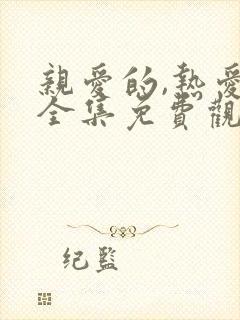 親愛的,熱愛
全集免費觀
纪监